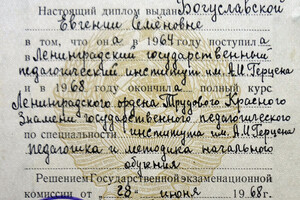 Настоящий диплом выдан Богуславской
Евгении Семёновне
в том, что она в 1964 году поступила в
Ленинградский государственный
педагогический институт им. А.И. Герцена
и в 1968 году окончила полный курс
Ленинградского ордена Трудового Красного
Знамени государственного педагогического
по специальности института им. А.И. Герцена
педагогика и методика начального
обучения
Решением Государственной экзаменационной
комиссии от 28 июня 1968 г.